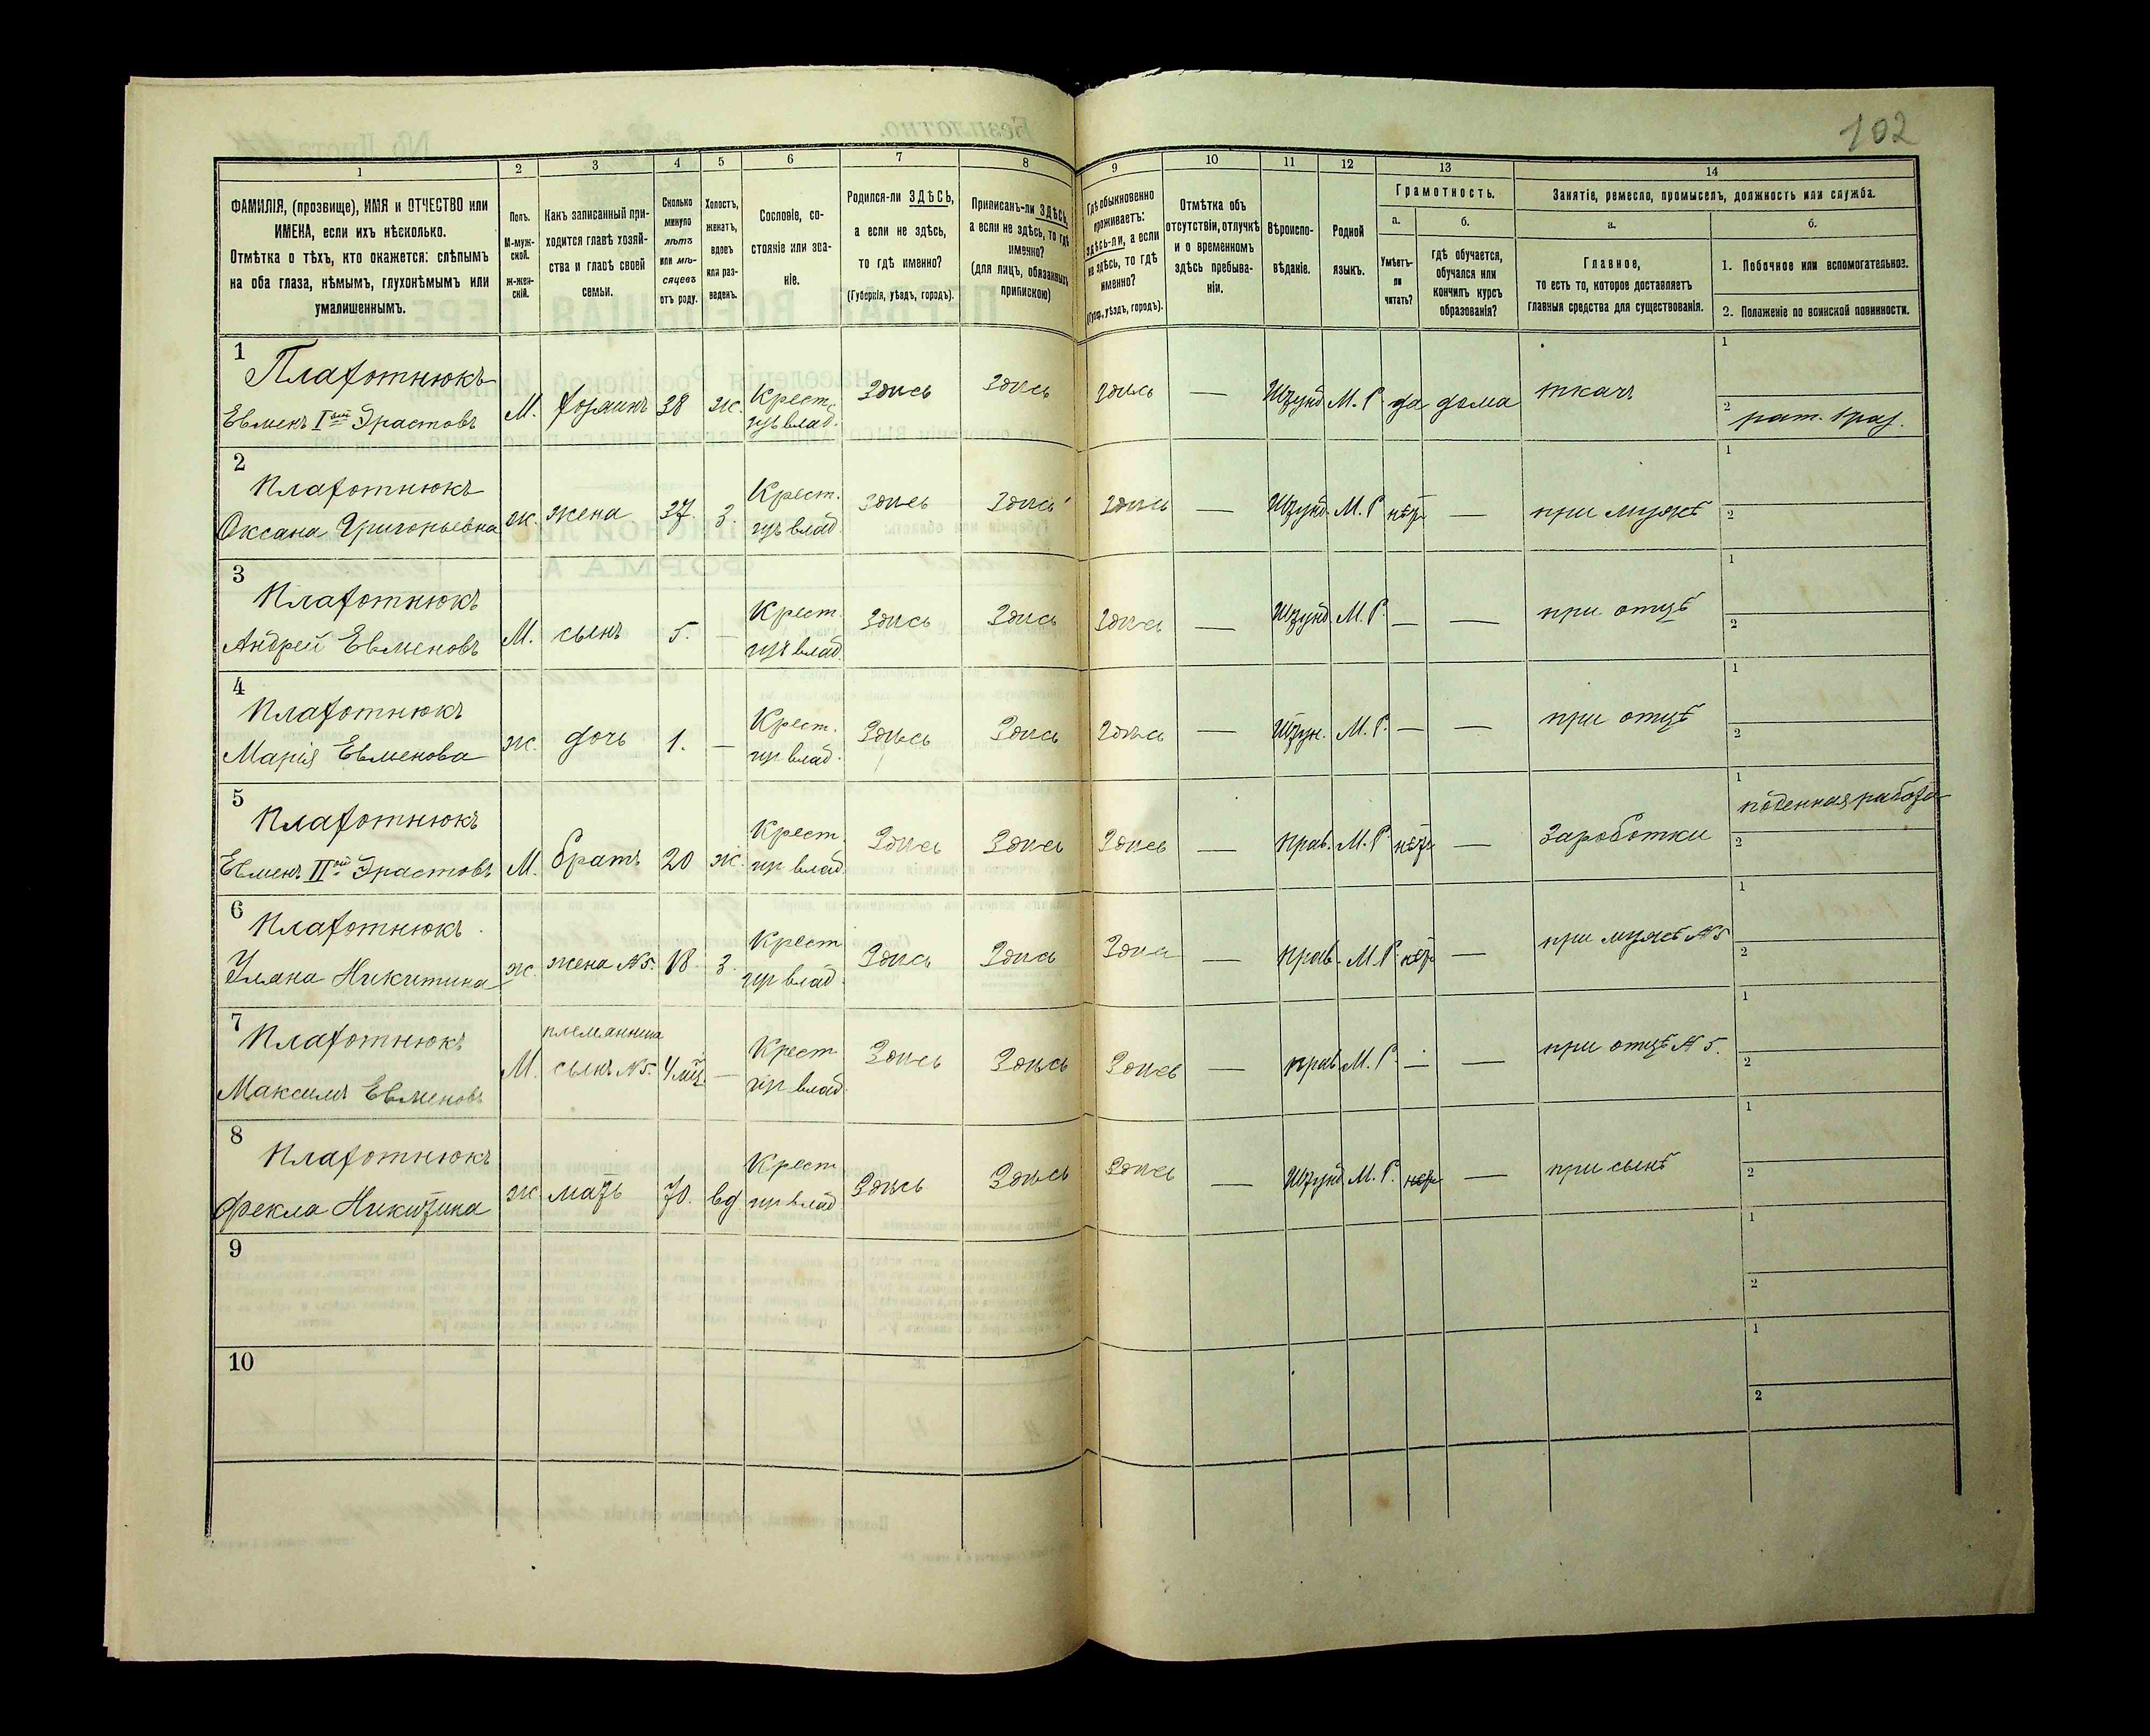 102
1 2 3 4 5 6 7 8 9 10 11 12 13 14
ФАМИЛІЯ, (прозвище), ИМЯ и ОТЧЕСТВО или
ИМЕНА, если ихъ нѣсколько.
Отмѣтка о тѣхъ, кто окажется: слѣпымъ
на оба глаза, нѣмымъ, глухонѣмымъ или
умалишеннымъ.
Полъ.
М-муж-
ской.
ж-жен-
скій.
Какъ записанный при-
ходится главѣ хозяй-
ства и главѣ своей
семьи.
Сколько
минуло
лѣтъ
или мѣ-
сяцевъ
отъ роду.
Холостъ,
женатъ,
вдовъ
или раз-
веденъ.
Сословіе, со-
стояніе или зва-
ніе.
Родился-ли ЗДѢСЬ,
а если не здѣсь,
то гдѣ именно?
(Губернія, уѣздъ, городъ).
Приписанъ-ли ЗДѢСЬ,
а если не здѣсь, то гдѣ
именно?
(для лицъ, обязанныхъ
припискою)
Гдѣ обыкновенно
проживаетъ:
здѣсь-ли, а если
не здѣсь, то гдѣ
именно?
(Губер., уѣздъ, городъ).
Отмѣтка объ
отсутствіи, отлучкѣ
и о временномъ
здѣсь пребыва-
ніи.
Вѣроиспо-
вѣданіе.
Родной
языкъ.
Грамотность.
а.
Умѣетъ-
ли
читать?
б.
гдѣ обучается,
обучался или
кончилъ курсъ
образованія?
Занятіе, ремесло, промыселъ, должность или служба.
а.
Главное,
то есть то, которое доставляетъ
главныя средства для существованія.
б.
1. Побочное или вспомогательное.
2. Положеніе по воинской повинности.
1 Плахотнюкъ
Евменъ Iый Эрастовъ М. 38 ж. Крест. влад. Здѣсь Здѣсь Здѣсь — Штунд. М. Р. да дома ткачъ 1
2
2 Плахотнюкъ
Оксана Григорьевна ж. жена 37. з. Крест. влад. Здѣсь Здѣсь Здѣсь — Штунд. М. Р. нѣтъ — при мужѣ 1
2
3 Плахотнюкъ
Андрей Евменовъ М. сынъ 5. — Крест. влад. Здѣсь Здѣсь Здѣсь — Штунд М. Р. — — при отцѣ 1
2
4 Плахотнюкъ
Марія Евменова ж. дочь 1. — Крест. влад. Здѣсь Здѣсь Здѣсь — Штун. М. Р. — — при отцѣ 1
2
5 Плахотнюкъ
Евменъ IIой Эрастовъ М. братъ 20 ж. Крест. влад. Здѣсь Здѣсь Здѣсь — прав. М. Р. нѣтъ — Зароботки 1 поденная работа
2
6 Плахотнюкъ
Уляна Никитина ж. жена №5. 18 з. Крест влад. Здѣсь Здѣсь Здѣсь — прав. М. Р. нѣтъ — при мужѣ №5 1
2
7 Плахотнюкъ
Максимъ Евменовъ М. сынъ №5. 4 мѣ. — Крест влад. Здѣсь Здѣсь Здѣсь — прав М. Р. — — при отцѣ №5. 1
2
8 Плахотнюкъ
Фекла Никитина ж мать 70. вд. Крест влад Здѣсь Здѣсь Здѣсь — Штунд М. Р. нѣтъ — при сынѣ 1
2
9 1
2
10 1
2